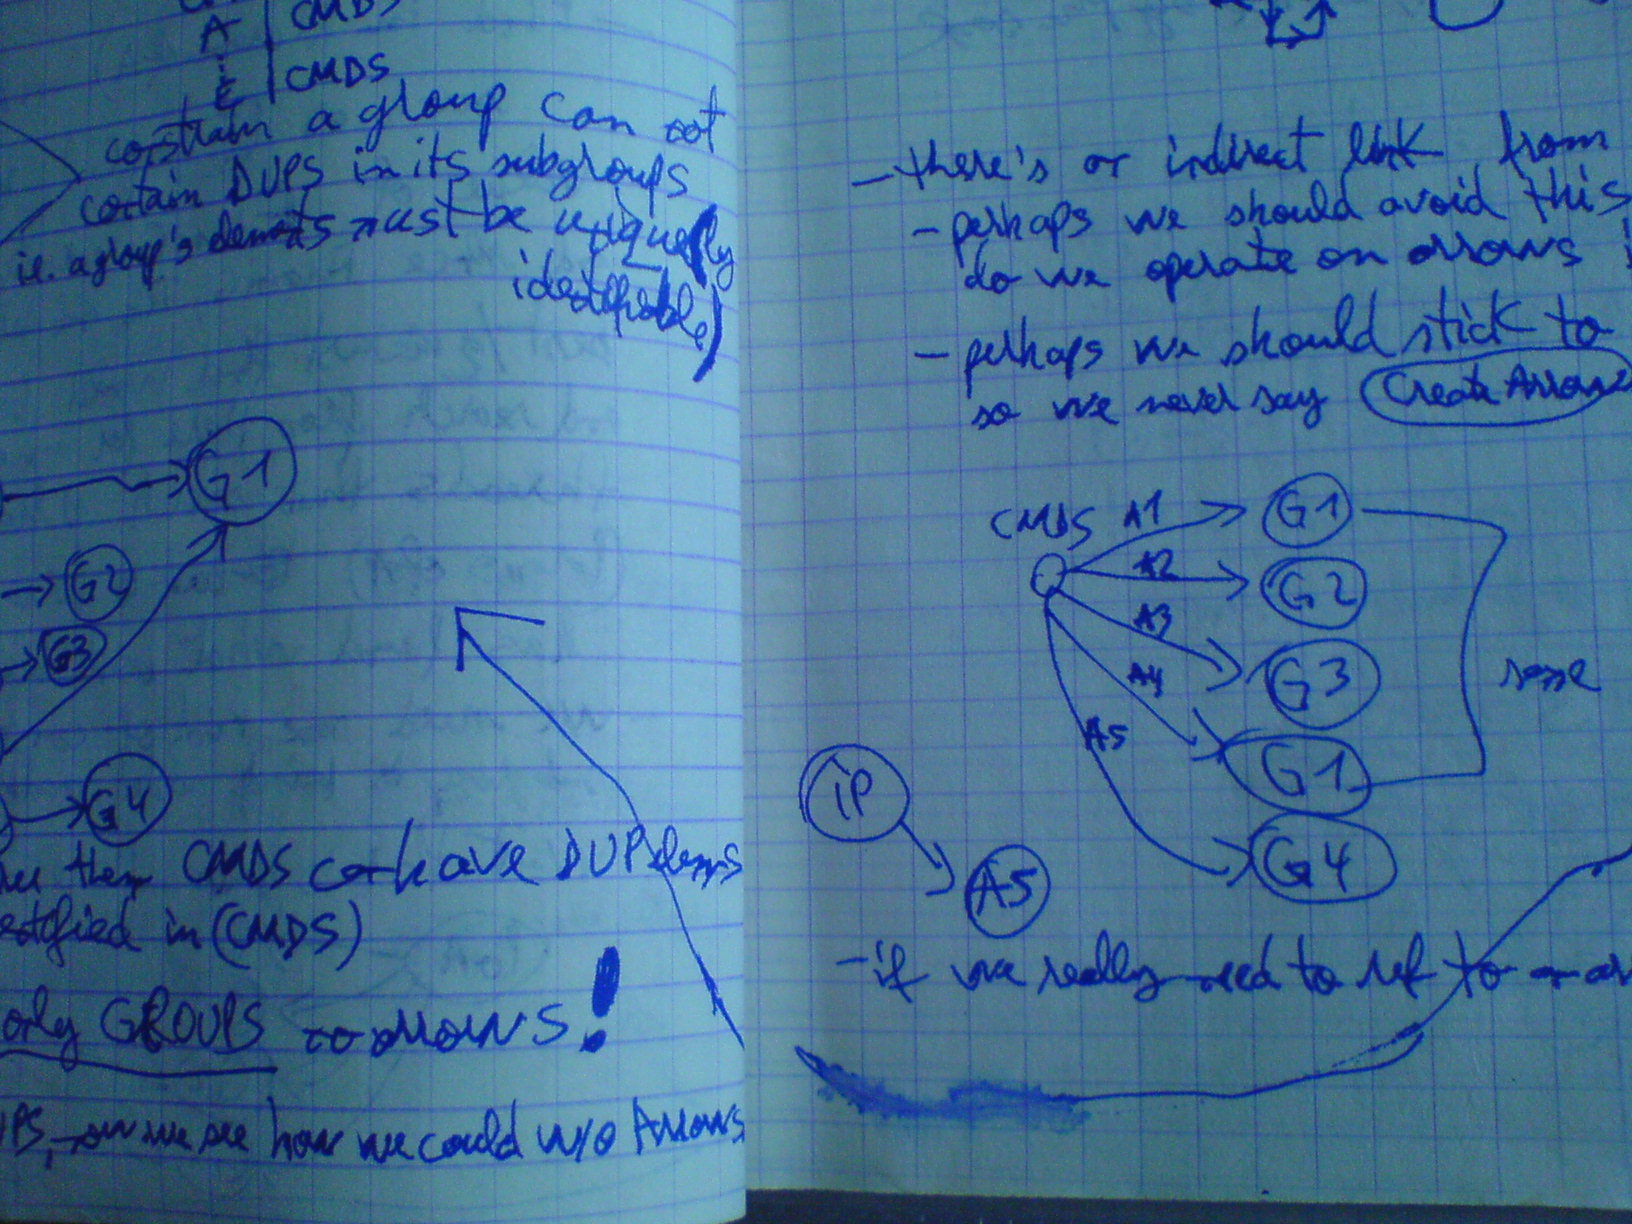 CMDS
A
CMDS
E
constrain a group can not
contain DUPS in its subgroups
ie. a group's elements must be uniquely
identifiable)
G1
G2
G3
G4
CMDS can have DUP elems
in (CMDS)
only GROUPS no arrows!
now we see how we could w/o Arrows
- there's an indirect link from
- perhaps we should avoid this
do we operate on arrows
- perhaps we should stick to
so we never say Create Arrow
CMDS A1 G1
A2 G2
A3 G3
A4 G1
A5 G4
same
iP
A5
- if we really need to ref to an